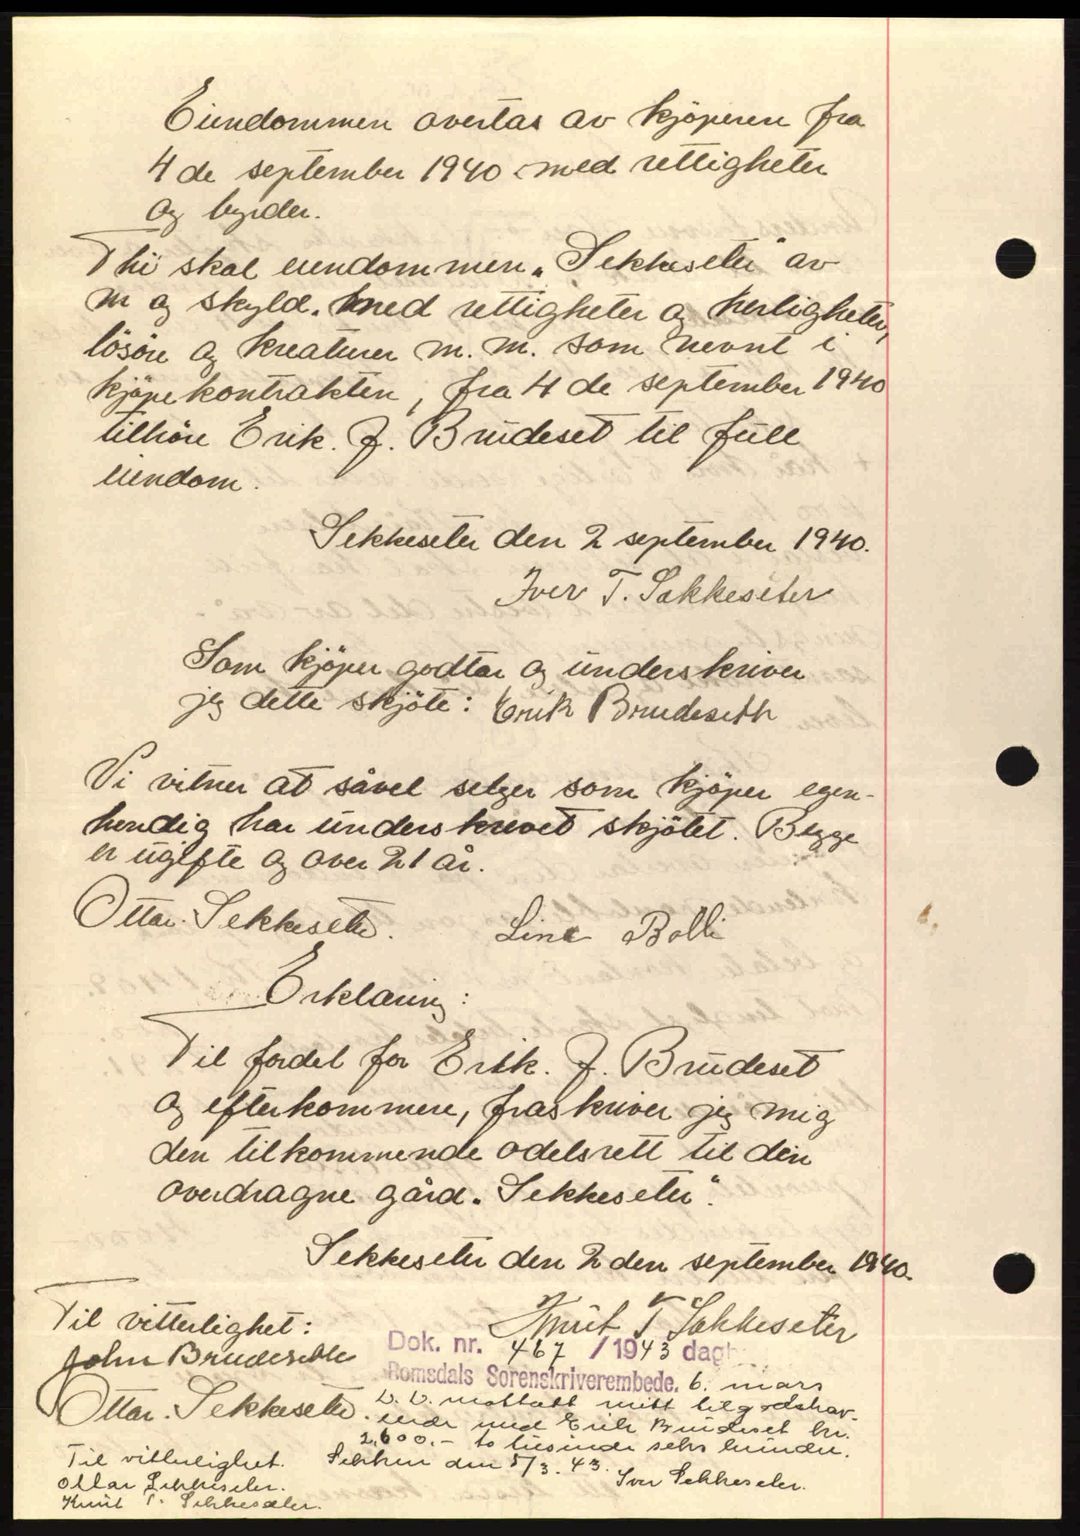 Eiendommen overtas av kjöperen fra
4 de september 1940 med rettigheter
og byrder.
Thi skal eiendommen "Sekkeseter" av
m og skyld. med rettigheter og herligheter,
lösöre og kreaturer m. m. som nevnt i
kjöpekontrakten, fra 4 de september 1940
tilhöre Erik. J. Brudeset til full
eiendom.
Sekkeseter den 2 september 1940.
Iver T. Sekkeseter
Som kjöper godtar og underskriver
jeg dette skjöte: Erik Brudeseth
Vi vitner at såvel selger som kjöper egen-
hendig har underskrevet skjötet. Begge
er ugifte og over 21 år.
Ottar. Sekkeseter. Line Bolli
Erklæring:
Til fordel for Erik. J. Brudeset
og efterkommere, fraskriver jeg mig
den tilkommende odelsrett til den
overdragne gård "Sekkeseter".
Sekkeseter den 2 den september 1940.
Til vitterlighet: Knut T Sekkeseter
John Brudeseth Dok. nr. 467 / 1943 dagb
Romsdals Sorenskriverembede. 6. mars
Ottar. Sekkeseter. D. D. mottatt mitt tilgodehav-
ende med Erik Brudeset kr.
2,600.- to tusinde seks hundre.
Til vitterlighet. Sekken den 5/3. 43.
Ottar Sekkeseter. Iver Sekkeseter.
Knut T. Sekkeseter.